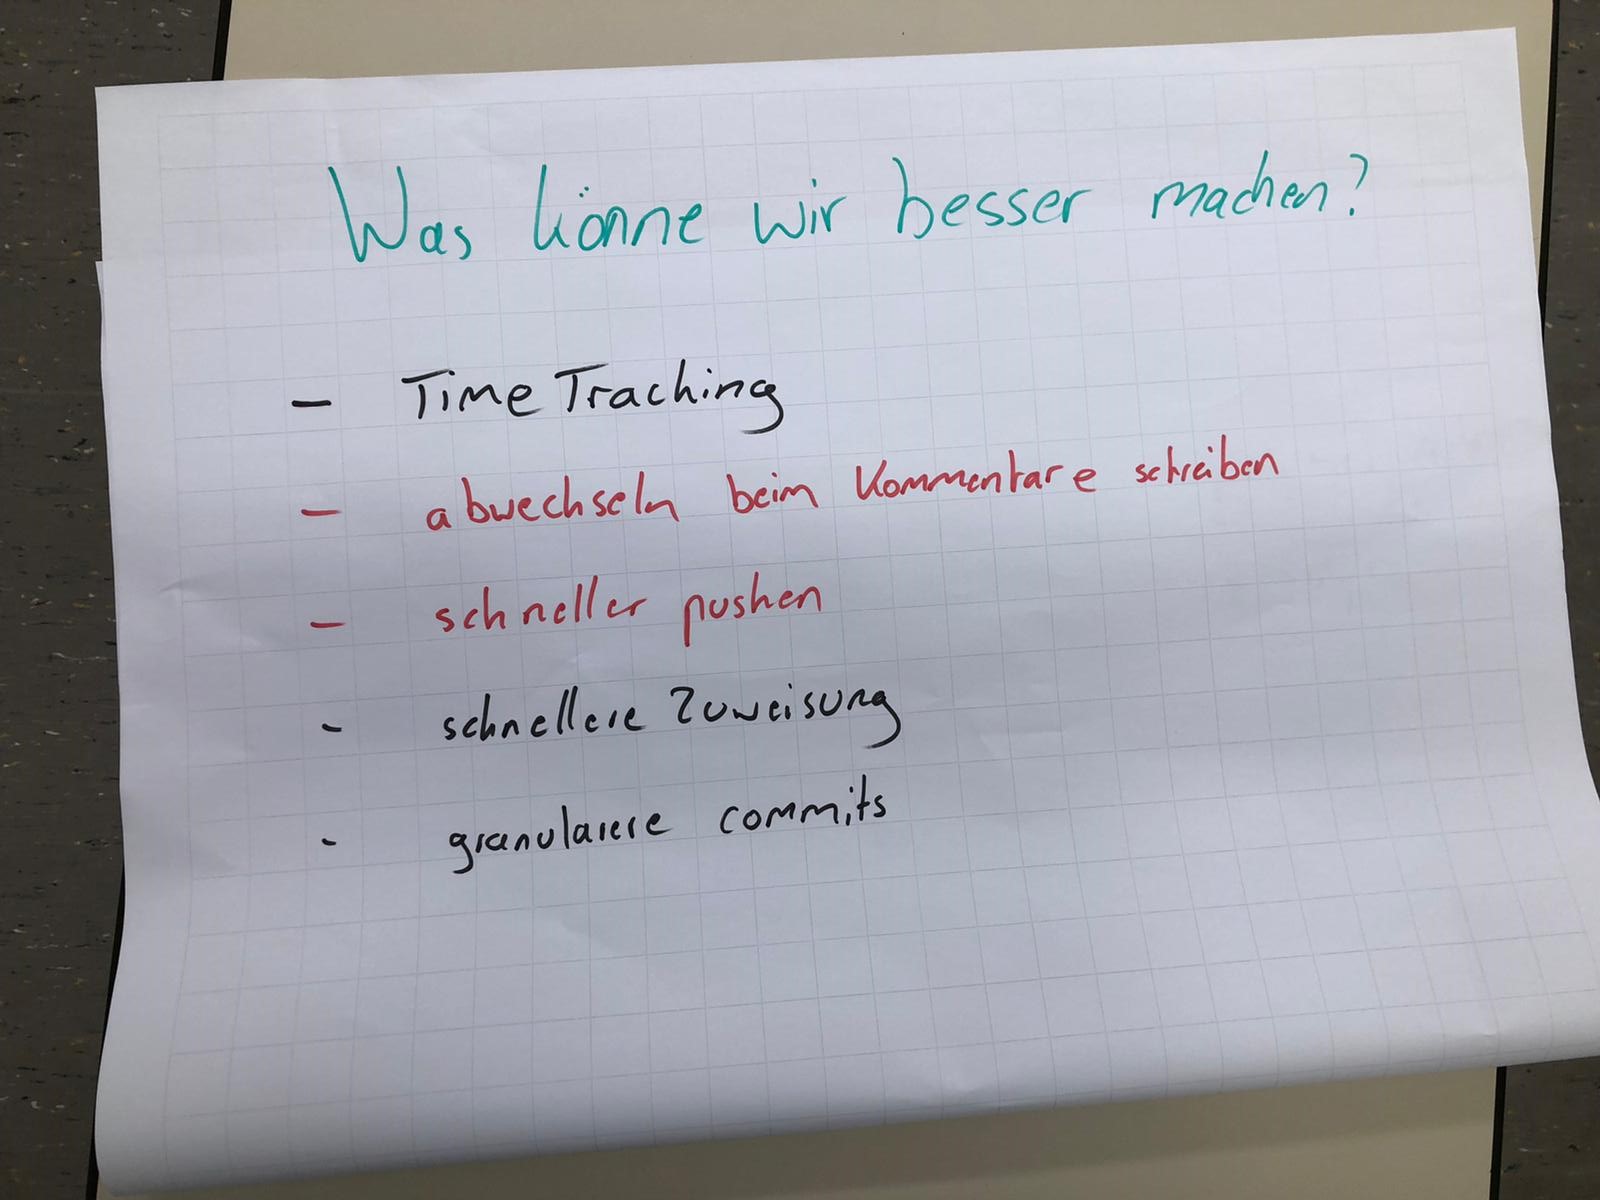 Was könne wir besser machen?
- Time Tracking
- abwechseln beim Kommentare schreiben
- schneller pushen
- schnellere Zuweisung
- granularere commits